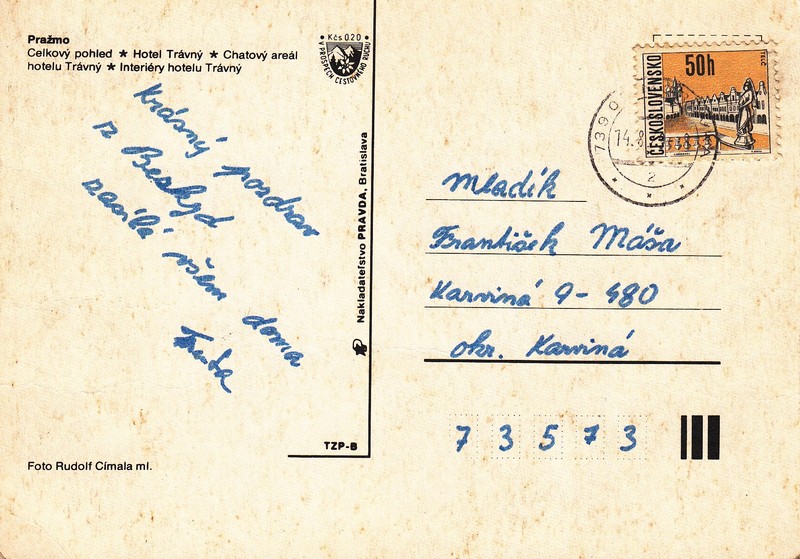 Pražmo
Celkový pohled ★ Hotel Trávný ★ Chatový areál
hotelu Trávný ★ Interiéry hotelu Trávný
Kčs 0.20
V PROSPĚCH CESTOVNÍHO RUCHU
Krásný pozdrav
z Beskyd
zasílá všem doma
Nakladateľstvo PRAVDA, Bratislava
TZP-B
Foto Rudolf Címala ml.
ČESKOSLOVENSKO
50h
TELČ
7390
14.8
2
Mladík
František Máša
Karviná 9 - 480
okr. Karviná
7 3 5 7 3